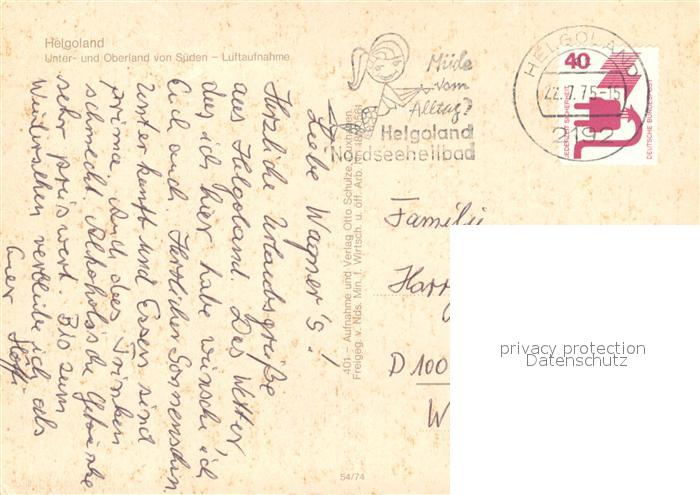 Helgoland
Unter- und Oberland von Süden – Luftaufnahme
Müde
vom
Alltag?
Helgoland
Nordseeheilbad
HELGOLAND
22.7.75-15
2192
40
JEDERZEIT SICHERHEIT
DEUTSCHE BUNDESPOST
Liebe Wagner's!
Herzliche Urlaubsgrüße
aus Helgoland. Das Wetter,
das ich hier habe wünsche ich
Euch auch. Herrlicher Sonnenschein.
Unterkunft und Essen sind
prima. Auch das Trinken
schmeckt. Alkoholische Getränke
sehr preiswert. Bis zum
Wiedersehen verbleibe ich als
Euer
401 – Aufnahme und Verlag Otto Schulze, Cuxhaven
Freigeg. v. Nds. Min. f. Wirtsch. u. öff. Arb. Nr.
54/74
Familie
Harr
D 100
W
privacy protection
Datenschutz